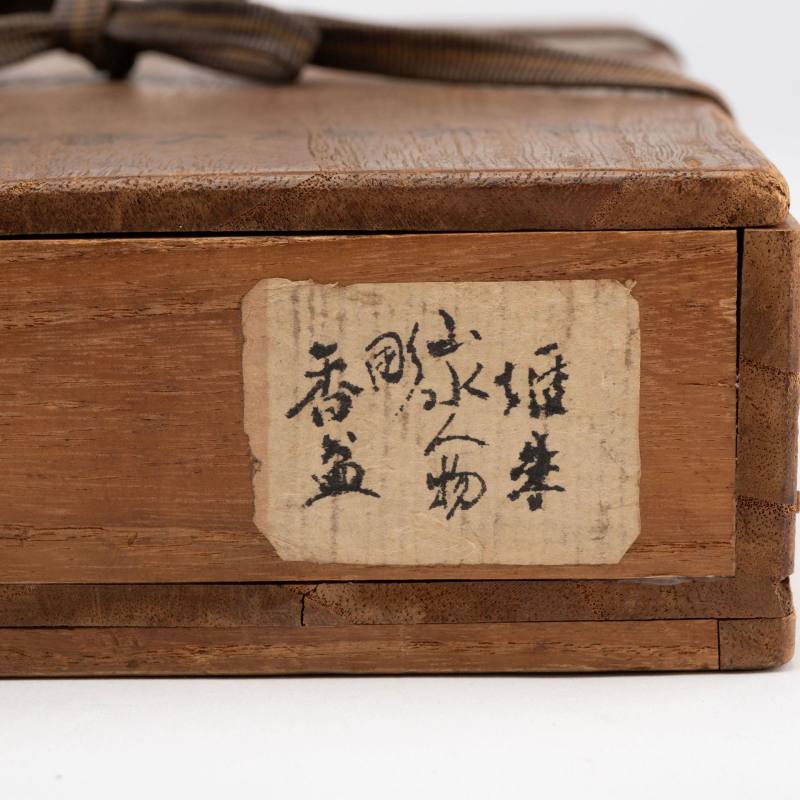 堆朱
山水人物
彫
香盆